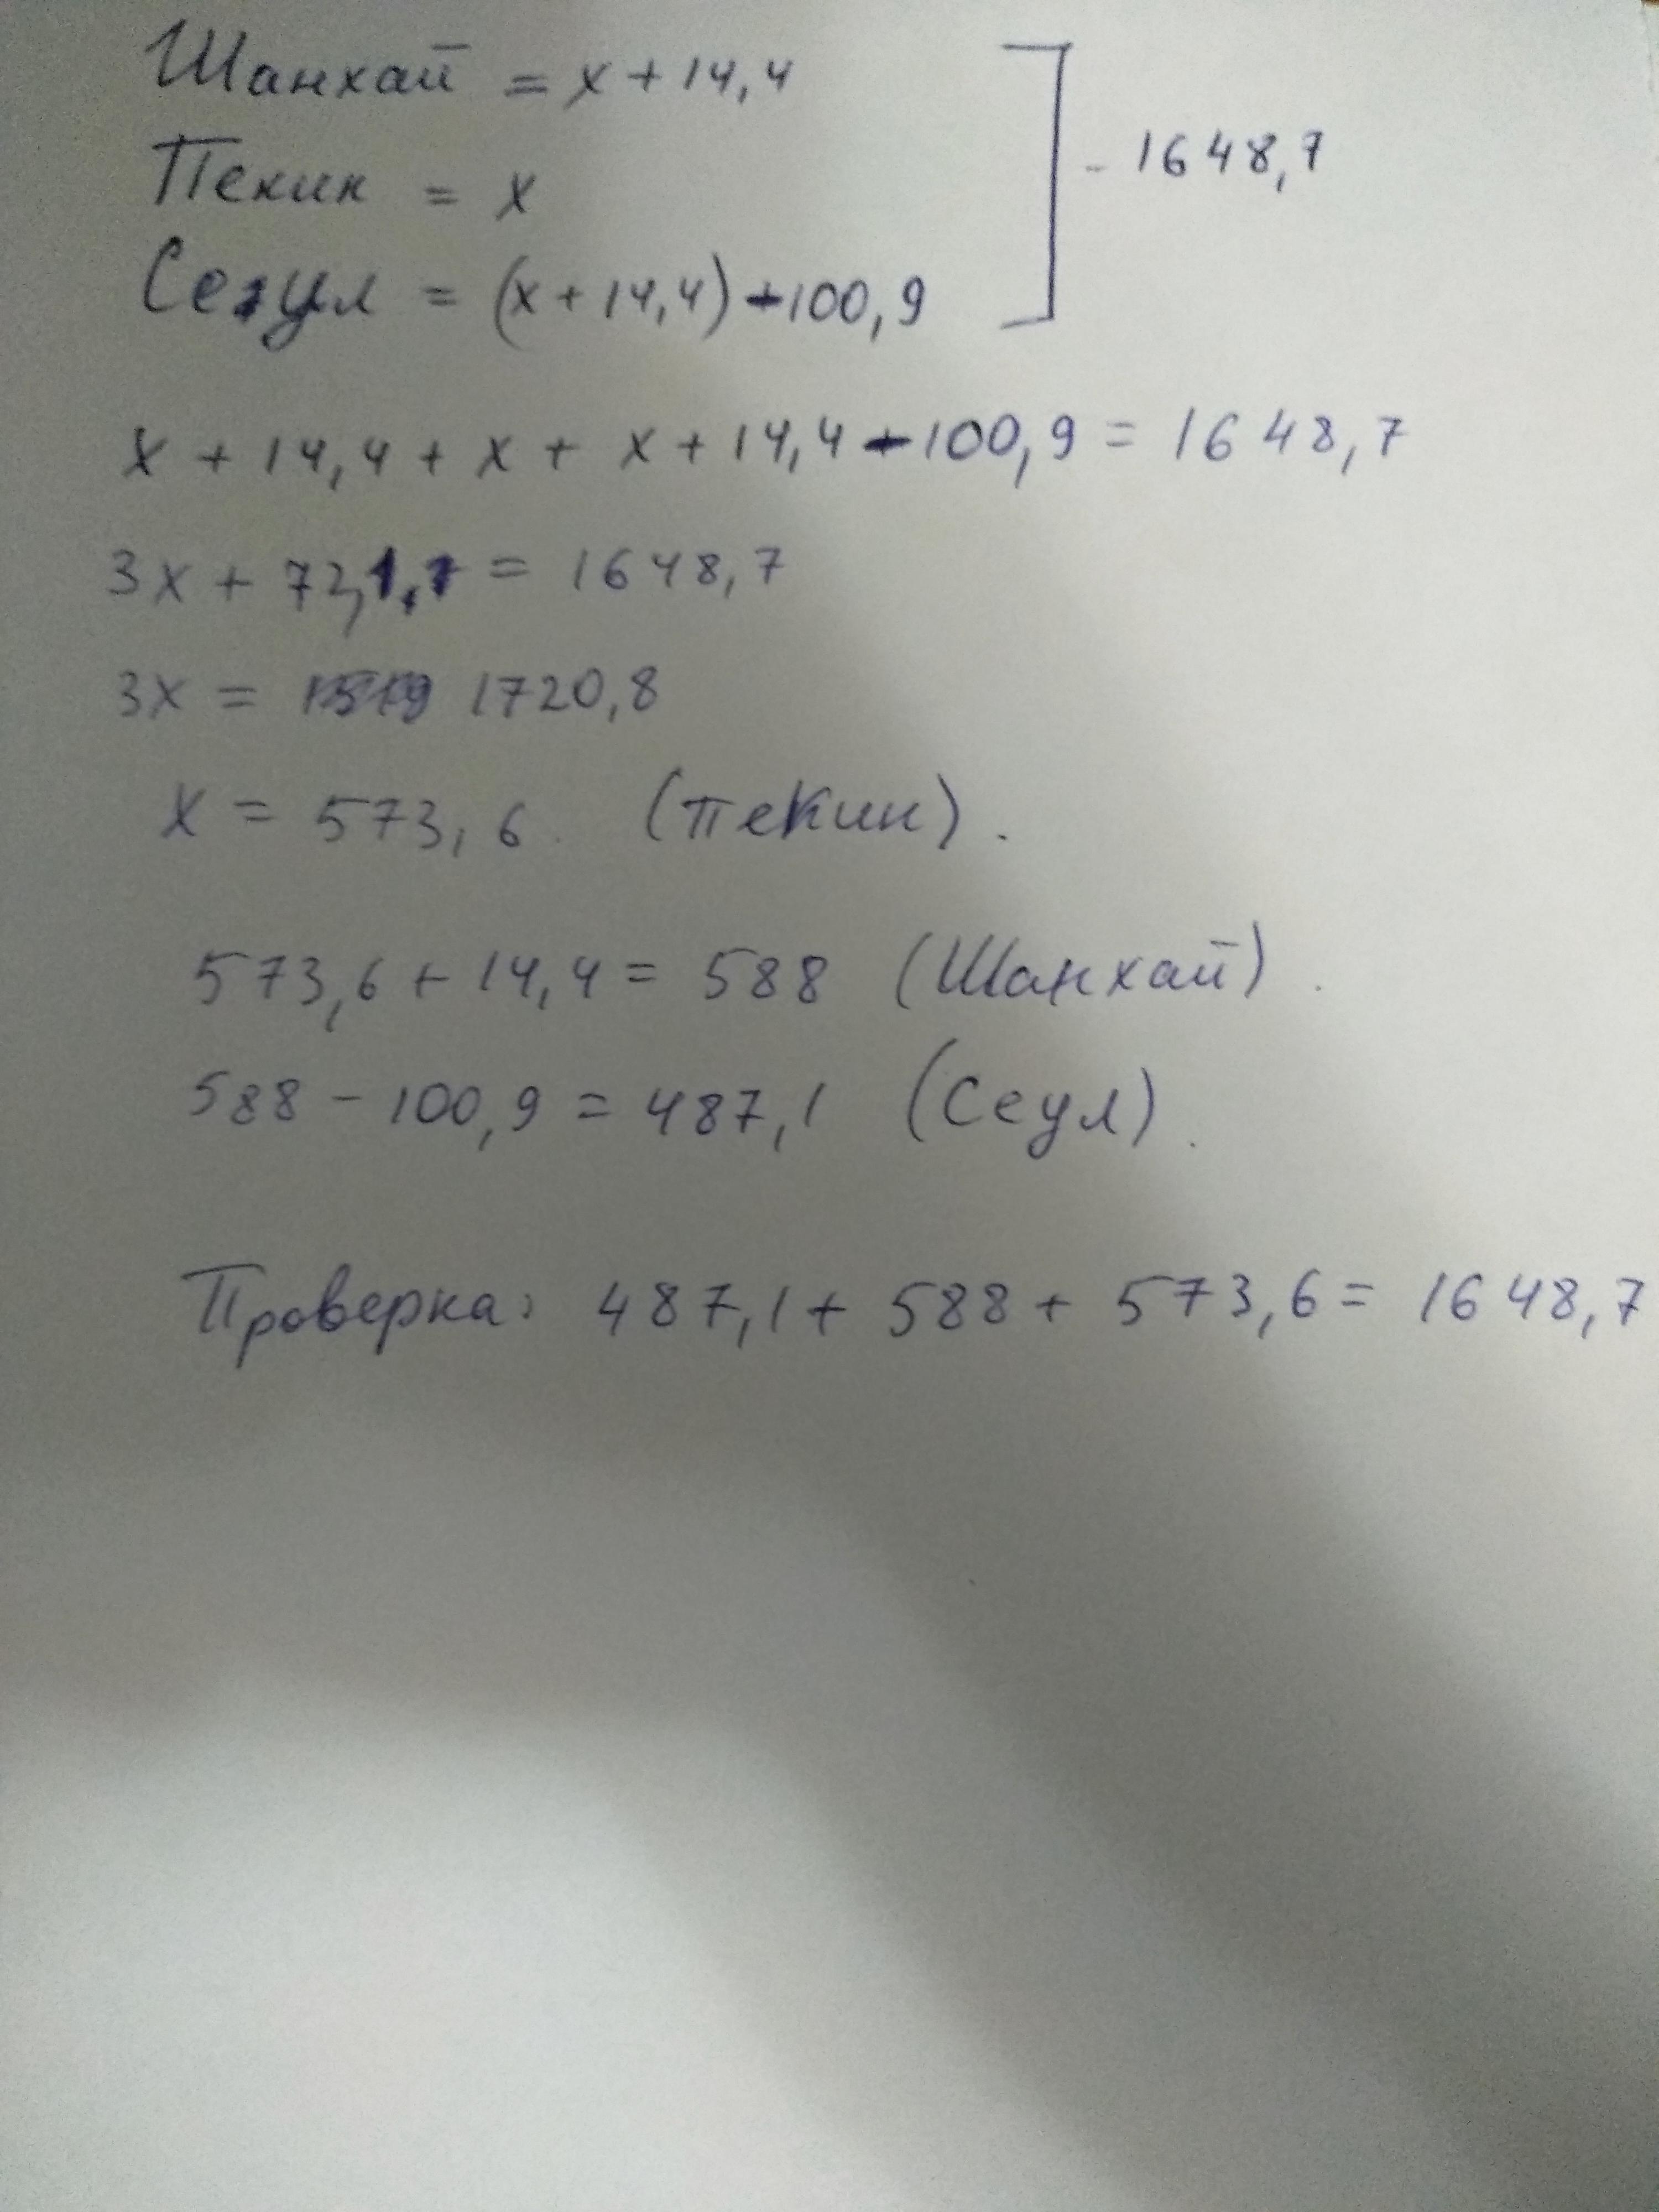 Шанхай = x + 14,4
Пекин = x
Сеул = (x + 14,4) - 100,9
- 1648,7
x + 14,4 + x + x + 14,4 - 100,9 = 1648,7
3x + 72,1 = 1648,7
3x = 1720,8
x = 573,6 (Пекин).
573,6 + 14,4 = 588 (Шанхай).
588 - 100,9 = 487,1 (Сеул).
Проверка: 487,1 + 588 + 573,6 = 1648,7